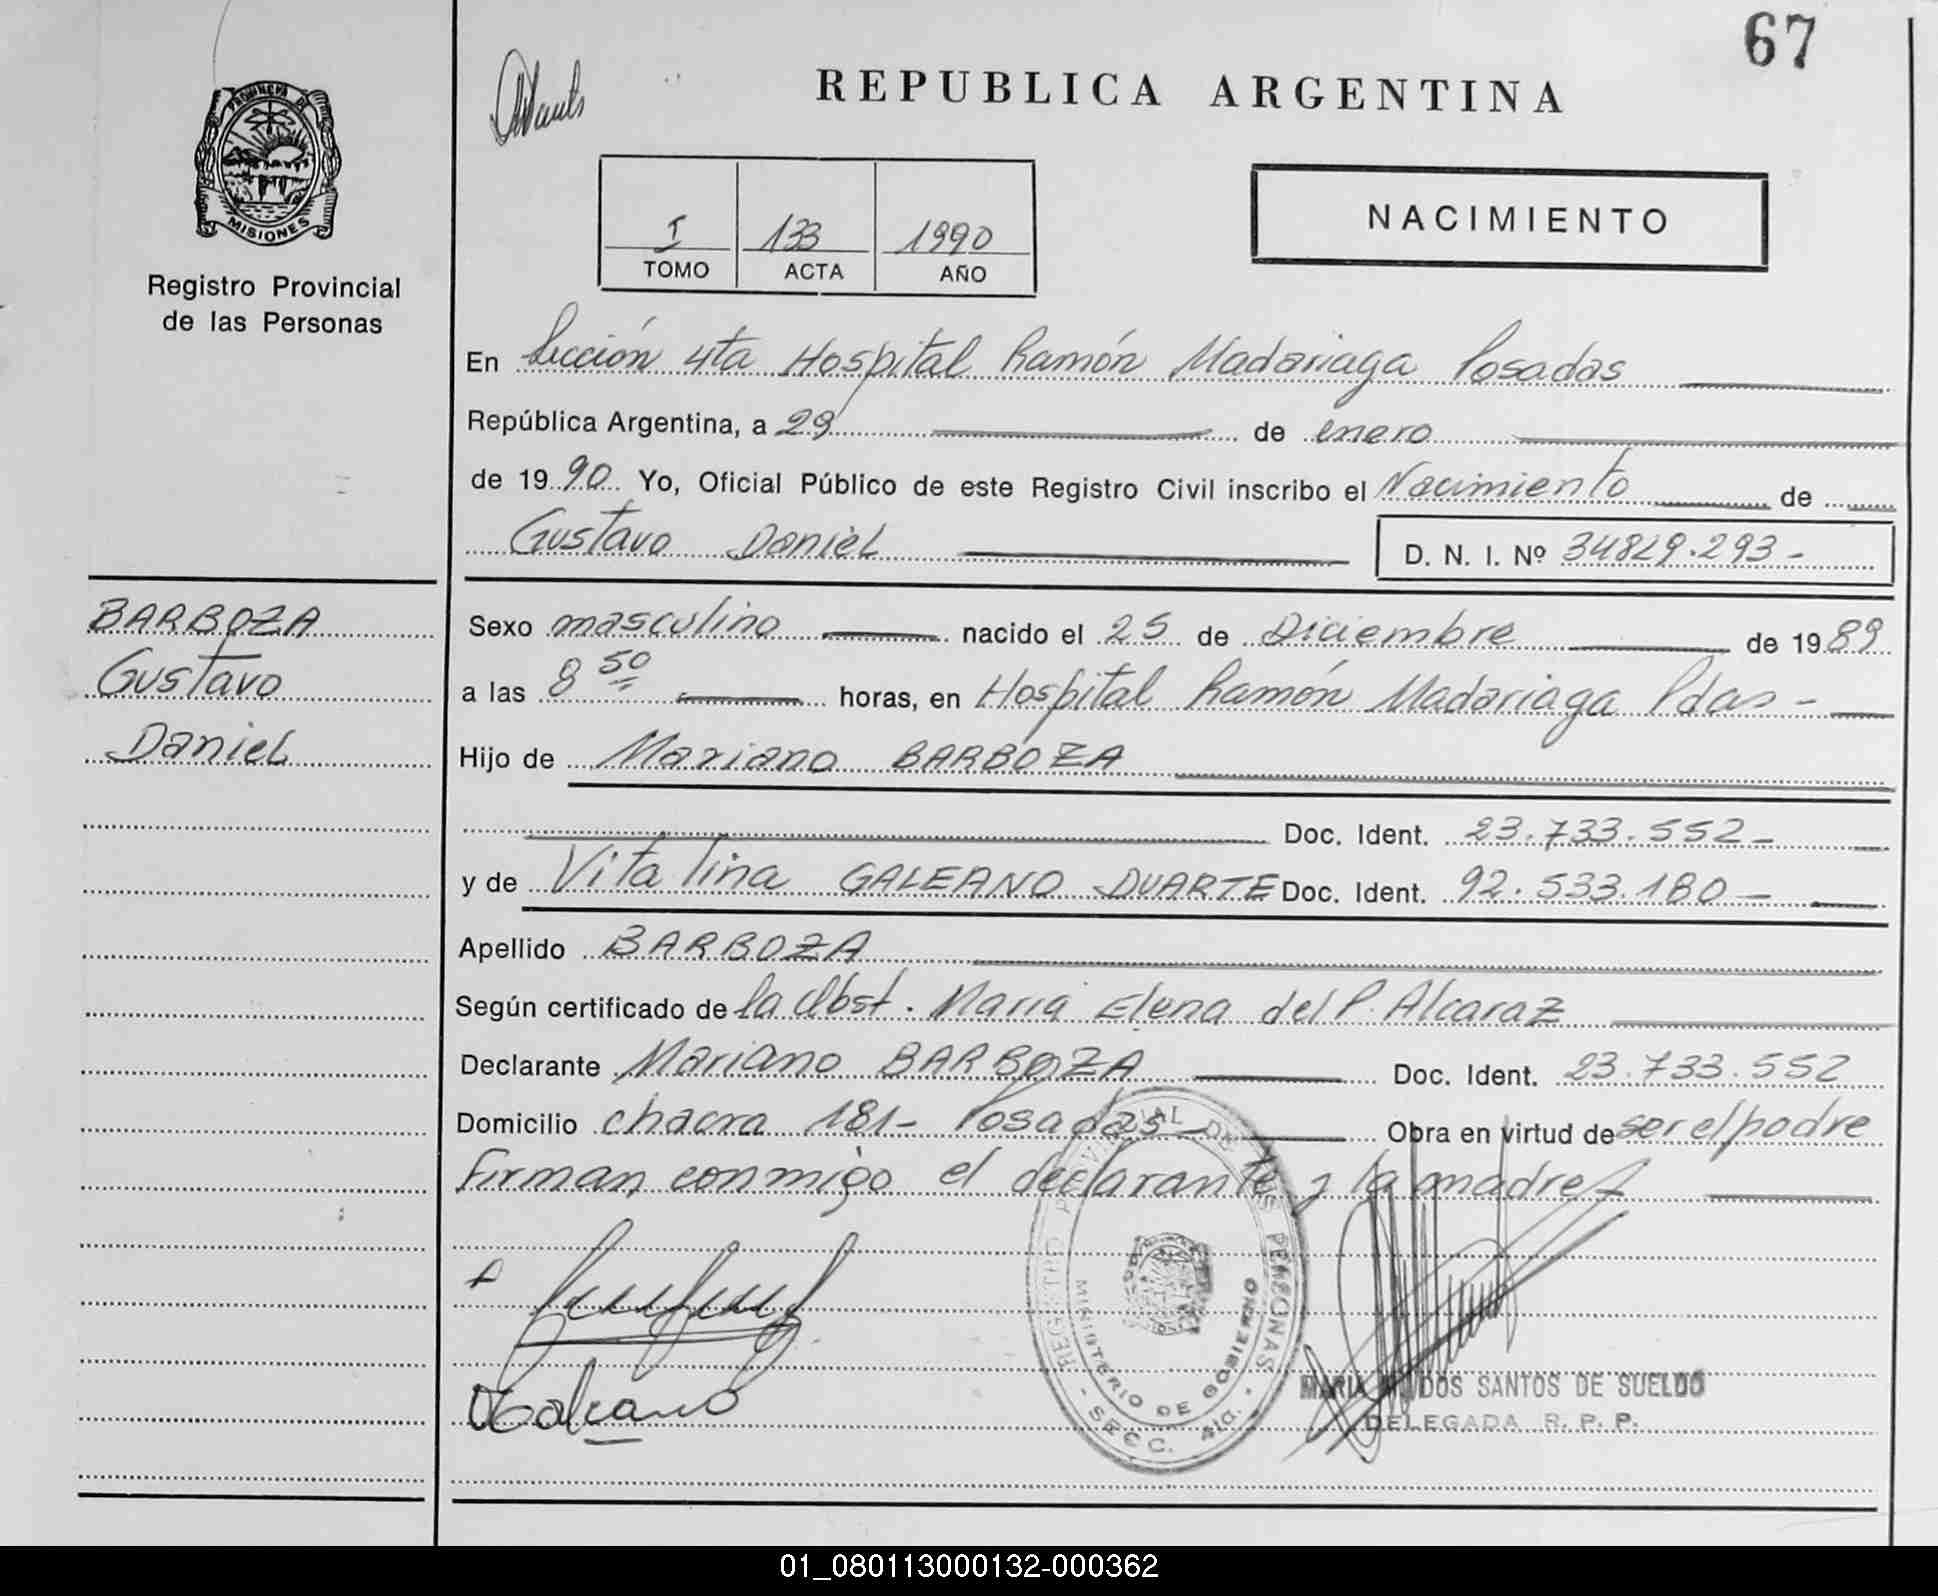 67
REPUBLICA ARGENTINA
PROVINCIA DE
MISIONES
Registro Provincial
de las Personas
I 133 1990
TOMO ACTA AÑO
NACIMIENTO
En Sección 4ta Hospital Ramón Madariaga Posadas
República Argentina, a 29 de enero
de 1990 Yo, Oficial Público de este Registro Civil inscribo el Nacimiento de
Gustavo Daniel D. N. I. Nº 34829.293-
BARBOZA
Gustavo
Daniel
Sexo masculino nacido el 25 de Diciembre de 1989
a las 8 50 horas, en Hospital Ramón Madariaga Pdas-
Hijo de Mariano BARBOZA
Doc. Ident. 23.733.552-
y de Vitalina GALEANO DUARTE Doc. Ident. 92.533.180-
Apellido BARBOZA
Según certificado de la Obst. Maria Elena del P. Alcaraz
Declarante Mariano BARBOZA Doc. Ident. 23.733.552
Domicilio chacra 181- Posadas- Obra en virtud de ser el padre
Firman conmigo el declarante y la madre
REGISTRO PROVINCIAL DE LAS PERSONAS
MINISTERIO DE GOBIERNO
- SECC. 4ta. -
Galeano
MARIA DOS SANTOS DE SUELDO
DELEGADA R. P. P.
01_080113000132-000362